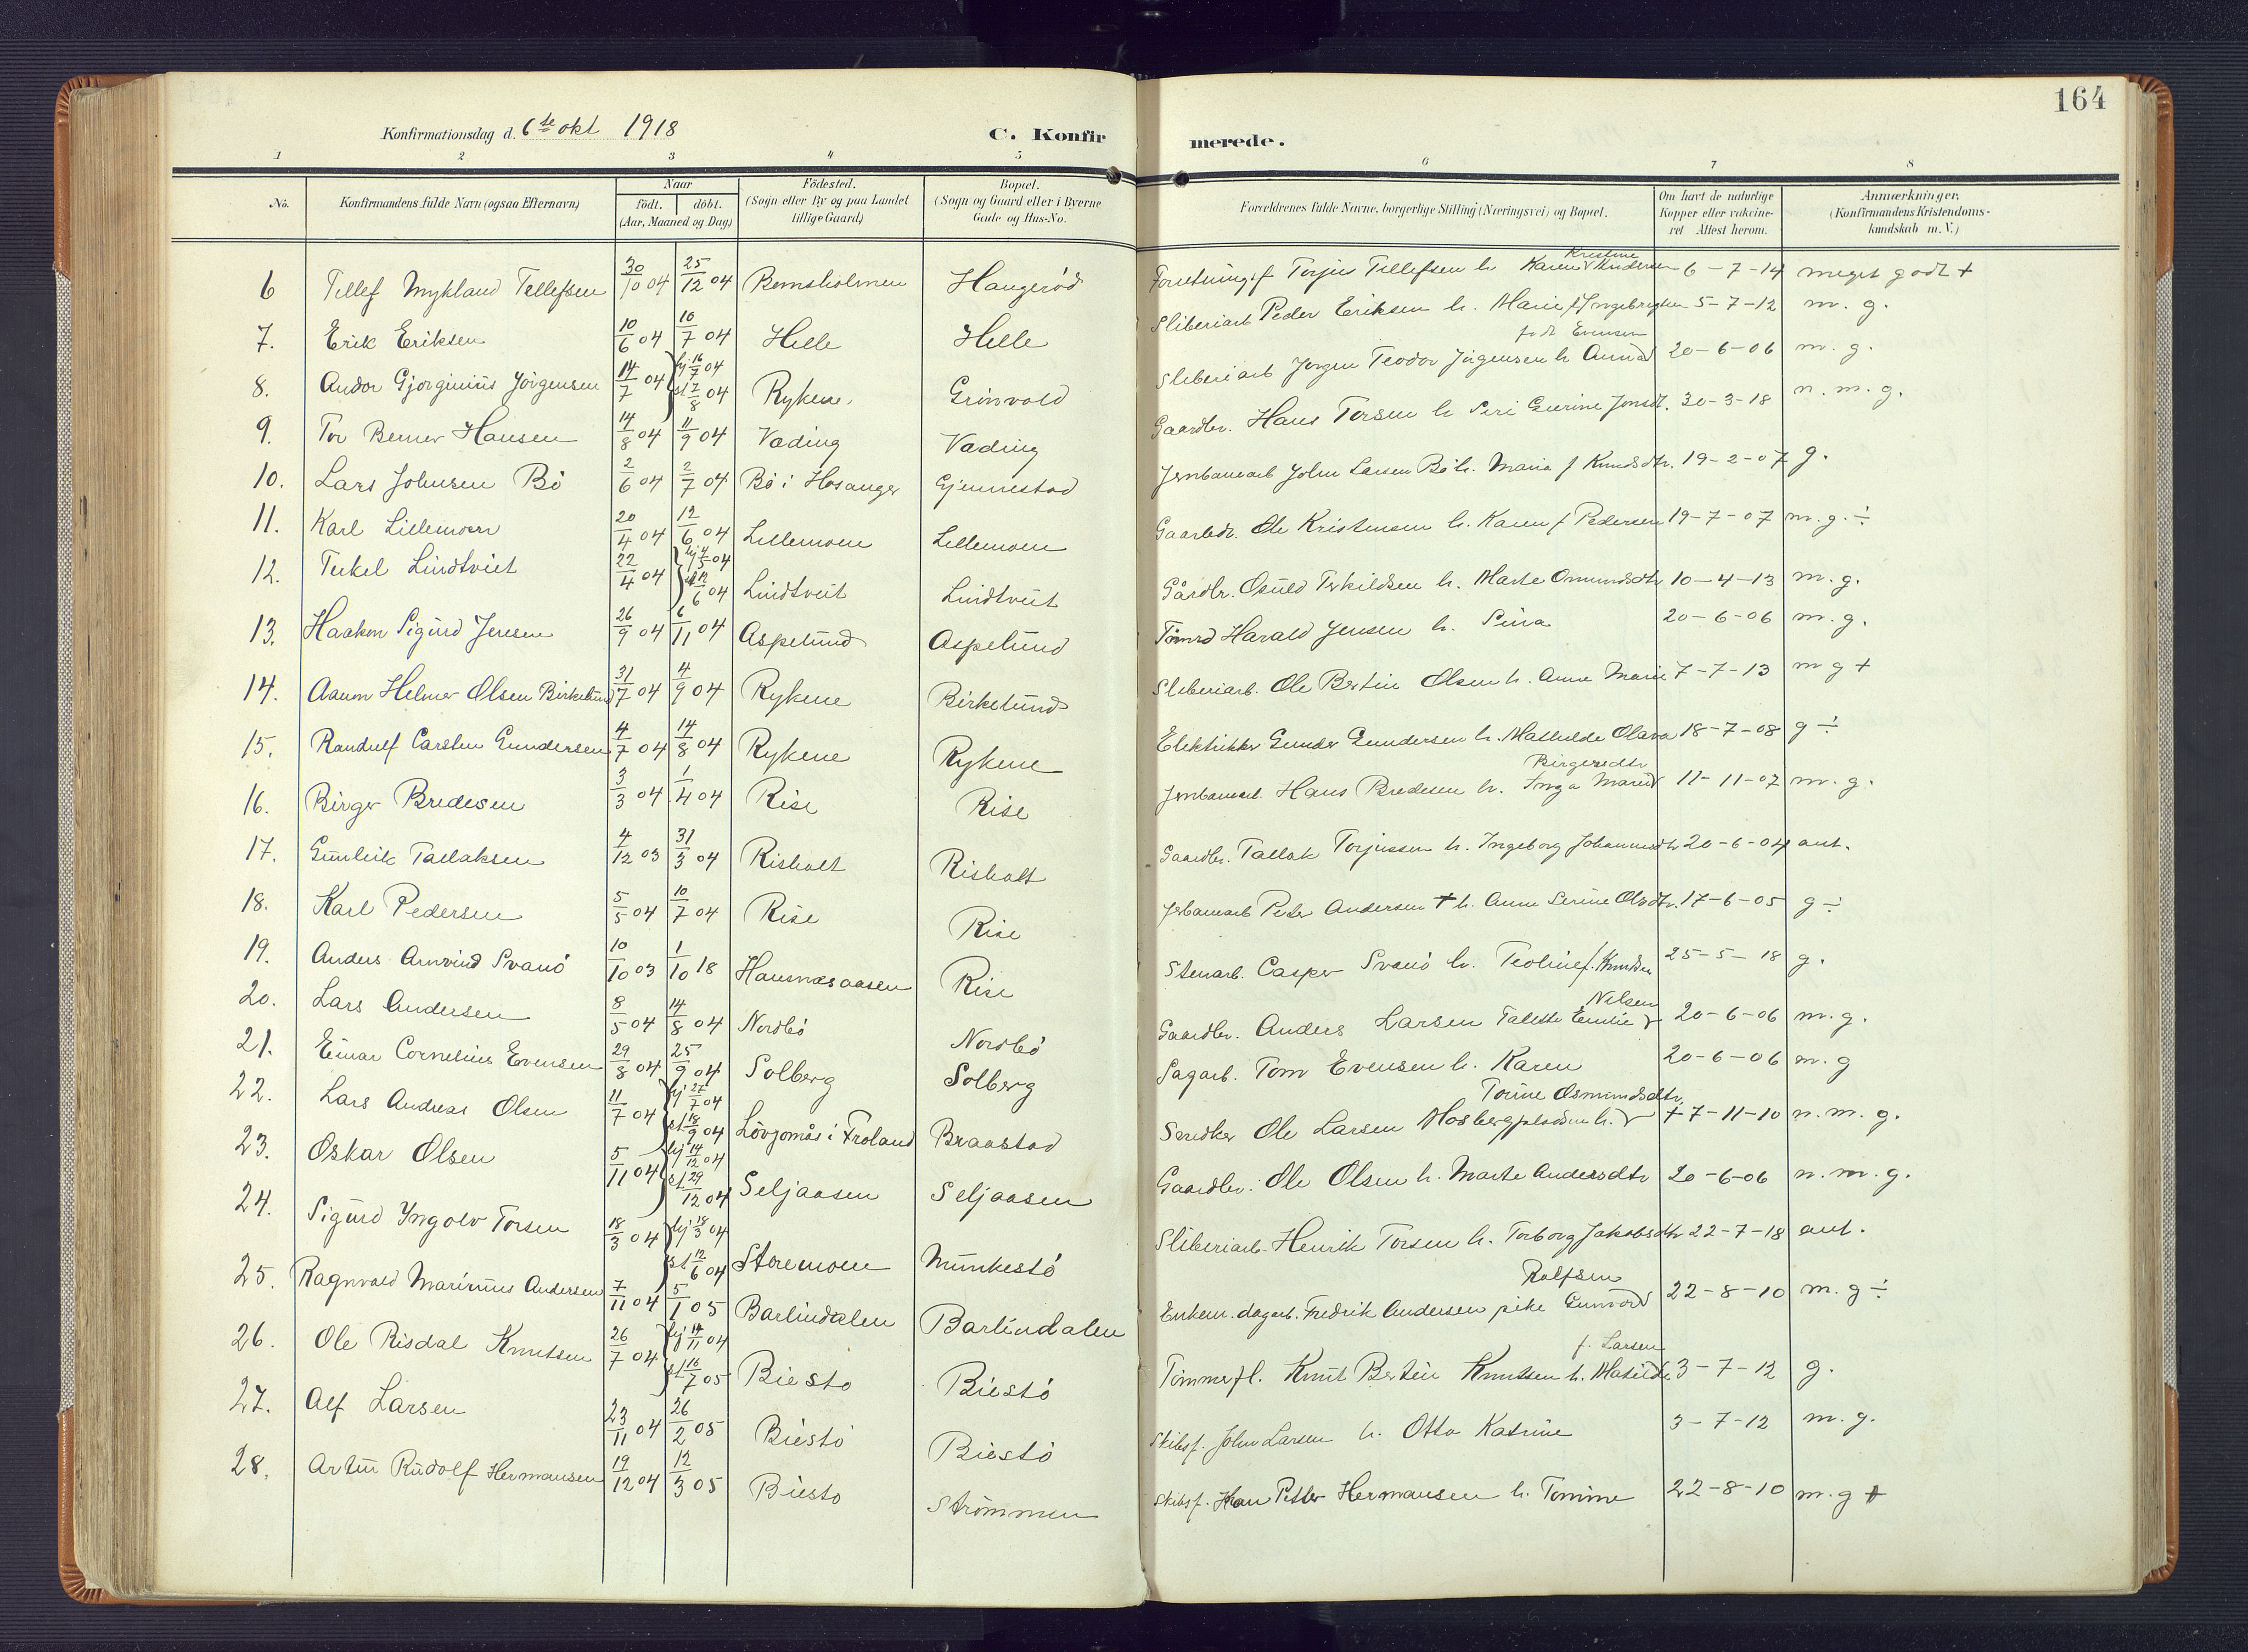 164
Konfirmationsdag d. 6te okt 1918 C. Konfirmerede.
1 2 3 4 5 6 7 8
No. Konfirmandens fulde Navn (ogsaa Efternavn) Naar födt. döbt. (Aar, Maaned og Dag) Födested. (Sogn eller By og paa Landet tillige Gaard) Bopæl. (Sogn og Gaard eller i Byerne Gade og Hus-No. Forældrenes fulde Navne, borgerlige Stilling (Næringsvei) og Bopæl. Om havt de naturlige Kopper eller vakcineret Attest herom. Anmærkninger. (Konfirmandens Kristendomskundskab m. V.)
6 Tellef Mykland Tellefsen 30/10 04 25/12 04 Bomsholmen Haugerød Forretningsf Torjus Tellefsen h. Karen Kristine Andersen 6-7-14 meget godt +
7. Erik Eriksen 10/6 04 10/7 04 Helle Helle Sliberiarb Peder Eriksen h. Marie f Ingebrigtsen 5-7-12 m. g.
8. Andor Gjorginius Jörgensen 14/7 04 hj 16/7 04 st 7/8 04 Rykene Grönvold Sliberiarb Jørgen Teodor Jörgensen h Anna født Evensen 20-6-06 m. g.
9. Tor Berner Hansen 14/8 04 11/9 04 Vading Vading Gaardbr. Hans Torsen h Siri Gurine Jonsdt. 30-3-18 n. m. g.
10. Lars Johnsen Bö 2/6 04 2/7 04 Bö i Hosanger Gjennestad Jernbanearb John Larsen Bö h. Maria f Knudsdtr. 19-2-07 g.
11. Karl Lillemoen 20/4 04 12/6 04 Lillemoen Lillemoen Gaardbr. Ole Kristensen h. Karen f Pedersen 19-7-07 m. g. ÷
12. Terkel Lindtveit 22/4 04 04 12/6 04 Lindtveit Lindtveit Gårdbr. Osuld Terkildsen h. Marte Omundsdtr 10-4-13 m. g.
13. Haakon Sigurd Jensen 26/9 04 6/11 04 Aspelund Aspelund Tömrd Harald Jensen h. Sina 20-6-06 m. g.
14. Aanon Helmer Olsen Birkelund 31/7 04 4/9 04 Rykene Birkelund Sliberiarb. Ole Bertin Olsen h. Anne Marie 7-7-13 m g +
15. Randulf Carsten Gundersen 4/7 04 14/8 04 Rykene Rykene Elektriker Gunder Gundersen h. Mathilde Olava 18-7-08 g ÷
16. Birger Bredesen 3/3 04 1/4 04 Rise Rise Jernbanearb. Hans Bredesen h. Inga Marie Birgeredtr 11-11-07 m. g.
17. Gunleik Tallaksen 4/12 03 31/3 04 Risholt Risholt Gaardbr. Tallak Torjussen h. Ingeborg Johannesdtr 20-6-04 ant.
18. Karl Pedersen 5/5 04 10/7 04 Rise Rise Jerbanearb Peder Andersen + h. Anne Serine Olsdtr. 17-6-05 g ÷
19. Anders Arnvind Svanö 10/10 03 1/10 18 Rise Stenarb. Casper Svanö h. Teoline f. Knudsen 25-5-18 g.
20. Lars Andersen 8/5 04 14/8 04 Nordbö Nordbö Gaardbr. Anders Larsen Talette Emilie Nilsen 20-6-06 m. g.
21. Einar Cornelius Evensen 29/8 04 25/9 04 Solberg Solberg Sagarb. Tom Evensen h. Karen 20-6-06 m. g
22. Lars Andreas Olsen 11/7 04 hj 27/7 04 st 18/9 04 Lövjomås i Froland Braastad Snedker Ole Larsen h. Torine Osmundsdtr. + 7-11-10 n. m. g.
23. Oskar Olsen 5/11 04 hj 14/12 04 st 29/12 04 Seljaasen Seljaasen Gaardbr. Ole Olsen h. Marte Andersdtr 20-6-06 n. m. g.
24. Sigurd Yngolv Torsen 18/3 04 hj 18/3 04 st 12/6 04 Storemoen Munkestö Sliberiarb. Henrik Torsen h. Torborg Jakobsdtr 22-7-18 ant.
25. Ragnvald Marinius Andersen 7/11 04 5/1 05 Barlindalen Barlindalen Enkem. dagarb. Fredrik Andersen pike Gunvord Rolfsen 22-8-10 m. g ÷
26. Ole Risdal Knutsen 26/7 04 hj 14/11 04 st 16/7 05 Biestö Biestö Tömmerfl. Knut Bertin Knutsen h. Matilde f. Larsen 3-7-12 g.
27. Alf Larsen 23/11 04 26/2 05 Biestö Biestö Skibsf. John Larsen h. Otto Katrine 3-7-12 m. g.
28. Artur Rudolf Hermansen 19/12 04 12/3 05 Biestö Strömmen Skibsf. Petter Hermansen h. Tomine 22-8-10 m. g +